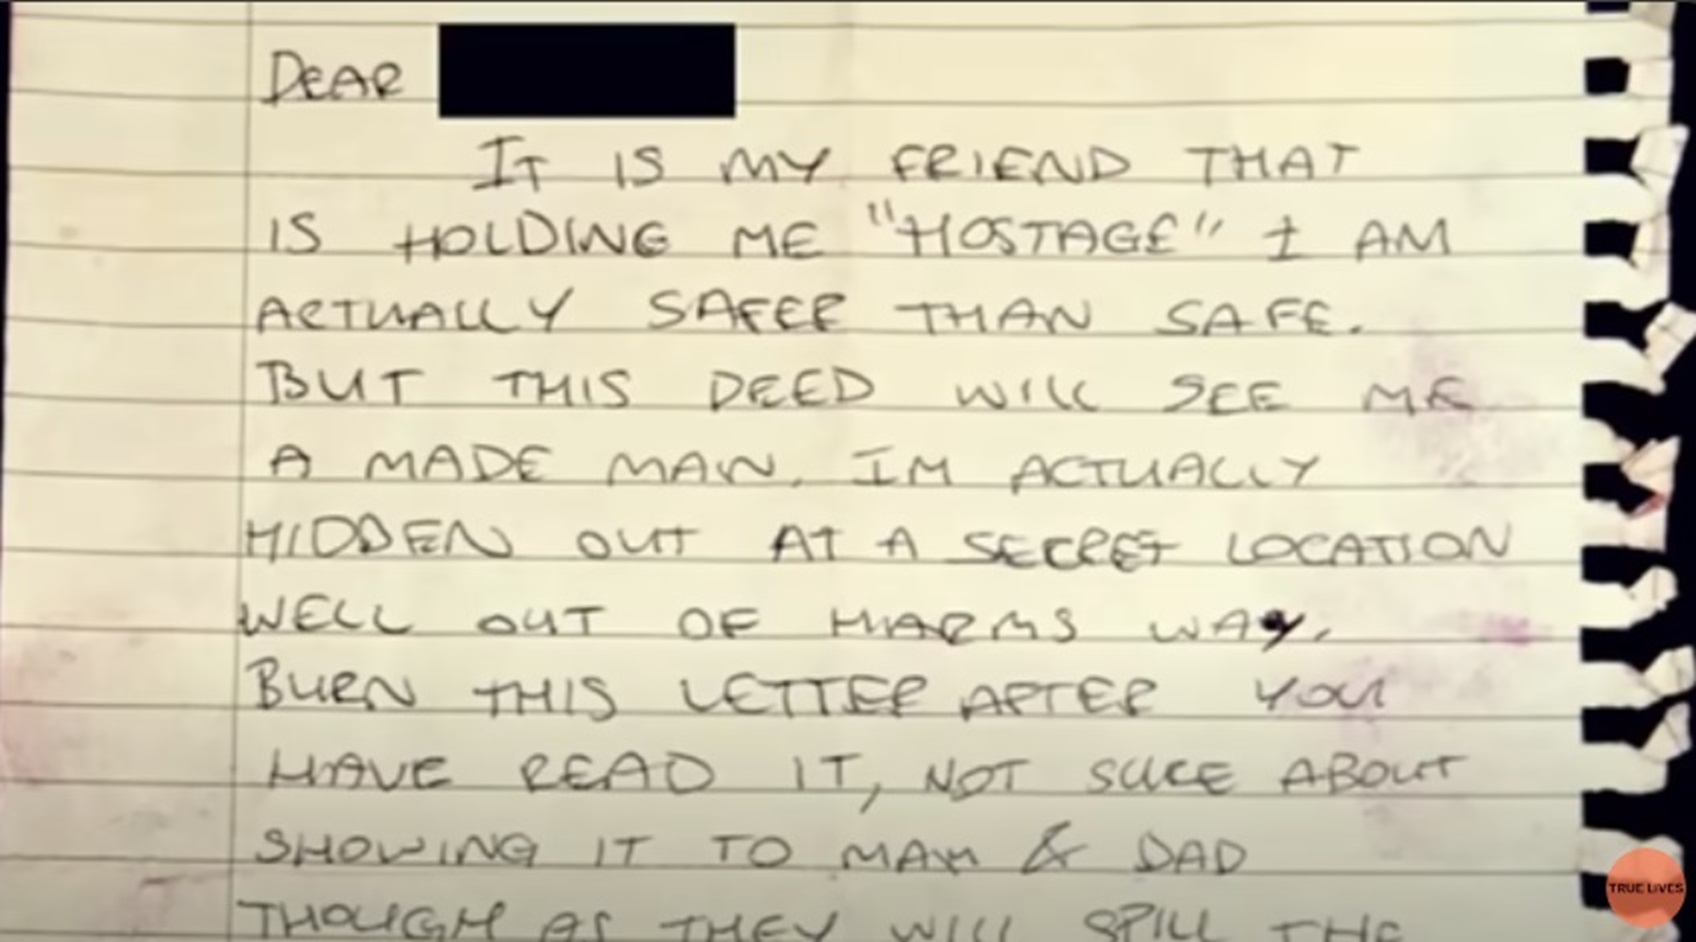 DEAR
IT IS MY FRIEND THAT
IS HOLDING ME "HOSTAGE" I AM
ACTUALLY SAFER THAN SAFE.
BUT THIS DEED WILL SEE ME
A MADE MAN. IM ACTUALLY
HIDDEN OUT AT A SECRET LOCATION
WELL OUT OF HARMS WAY.
BURN THIS LETTER AFTER YOU
HAVE READ IT, NOT SURE ABOUT
SHOWING IT TO MAM & DAD
THOUGH AS THEY WILL SPILL THE
TRUE LIVES